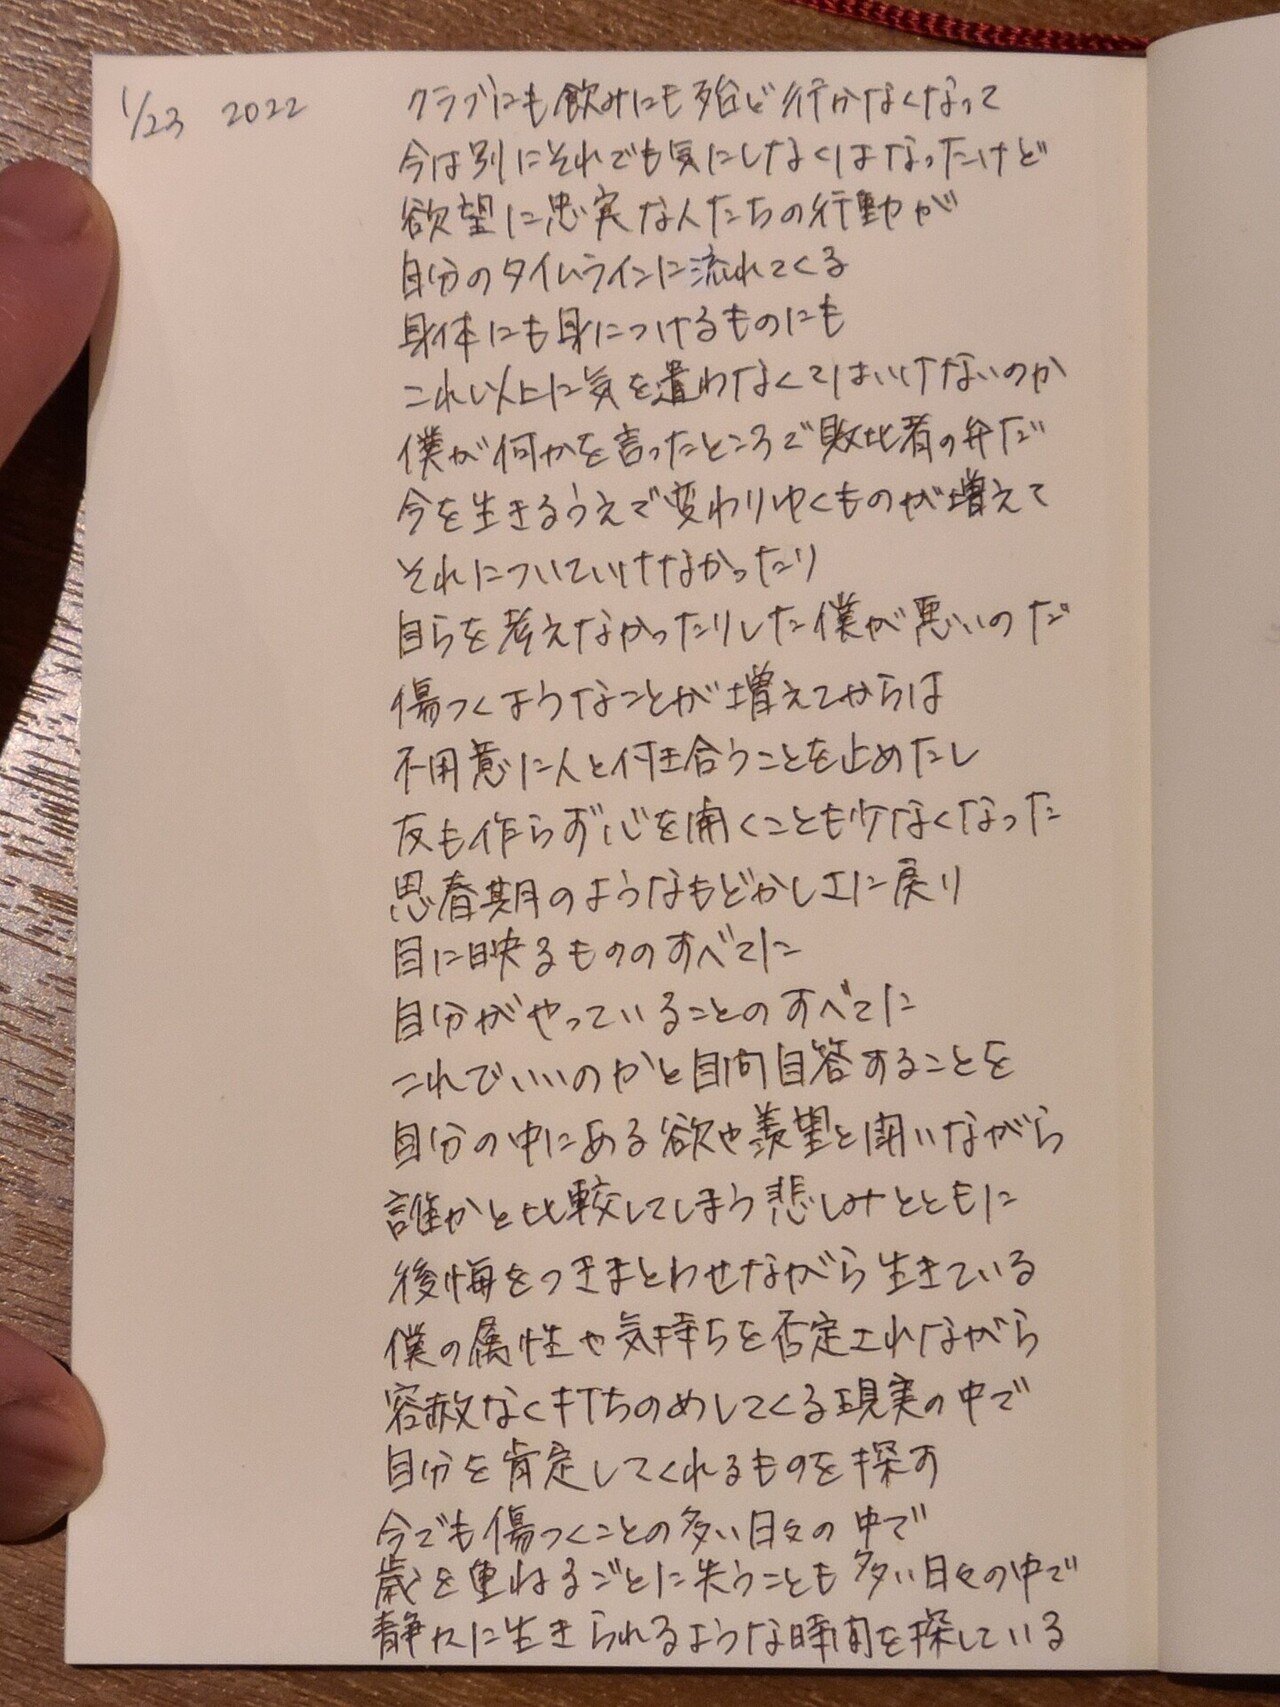 1/23 2022
クラブにも飲みにも殆ど行かなくなって
今は別にそれでも気にしなくはなったけど
欲望に忠実な人たちの行動が
自分のタイムラインに流れてくる
身体にも身につけるものにも
これ以上に気を遣わなくてはいけないのか
僕が何かを言ったところで敗北者の弁だ
今を生きるうえで変わりゆくものが増えて
それについていけなかったり
自らを考えなかったりした僕が悪いのだ
傷つくようなことが増えてからは
不用意に人と付き合うことを止めたし
友も作らず心を開くことも少なくなった
思春期のようなもどかしさに戻り
目に映るもののすべてに
自分がやっていることのすべてに
これでいいのかと自問自答することを
自分の中にある欲や羨望と闘いながら
誰かと比較してしまう悲しみとともに
後悔をつきまとわせながら生きている
僕の属性や気持ちを否定されながら
容赦なく打ちのめしてくる現実の中で
自分を肯定してくれるものを探す
今でも傷つくことの多い日々の中で
歳を重ねるごとに失うことも多い日々の中で
静かに生きられるような時間を探している